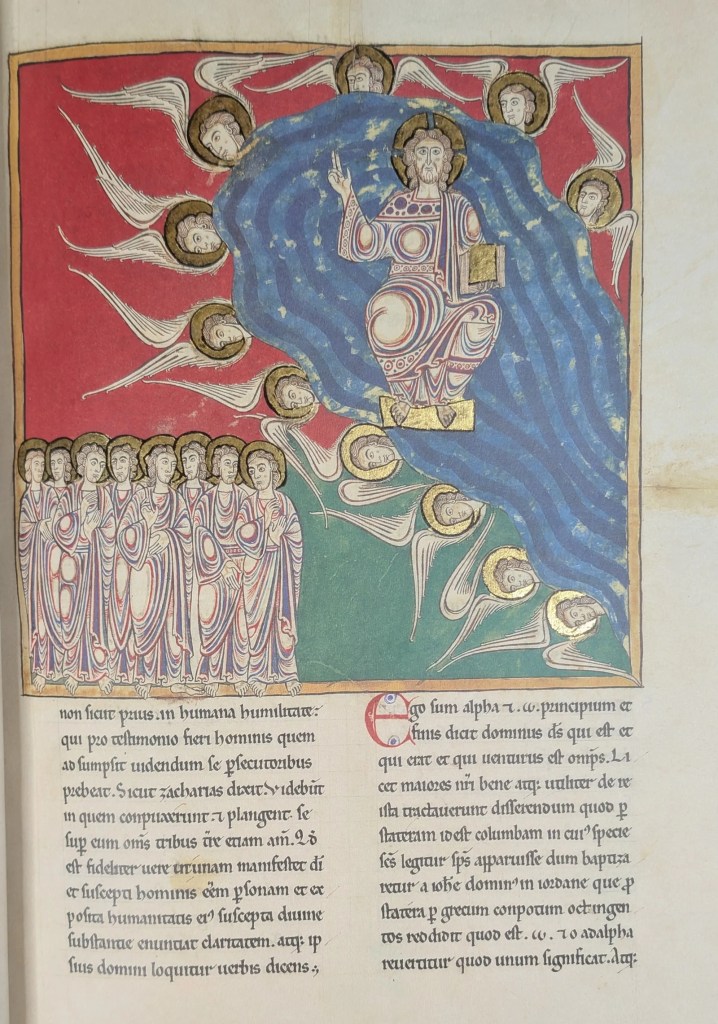 non sicut prius. in humana humilitate:
qui pro testimonio fieri hominis quem
adsumpsit uidendum se psecutoribus
prebeat. Sicut zacharias dixit. Videbūt
in quem conpuxerunt. ⁊ plangent se
sup eum om̄s tribus tr̄e etiam am̄.
est fideliter uere ut unam manifestet dī
et suscepti hominis eēm psonam et ex
posita humanitatis eiꝰ suscepta diuine
substantie enuntiat claritatem. atq; ip
sius domini loquitur uerbis dicens.,
Ego sum alpha ⁊ .ω. principium et
finis dicit dominus ds̄ qui est et
qui erat et qui uenturus est omp̄s. Li
cet maiores nr̄i bene atq; utiliter de re
ista tractauerunt disserendum quod p
stateram id est columbam in cuiꝰ specie
sc̄s legitur sps̄ apparuisse dum baptiza
retur a ioħe dominꝰ in iordane que p
statera p grecum conpotum octingen
tos reddidit quod est .ω. ⁊ o ad alpha
reuertitur quod unum significat. Atq;